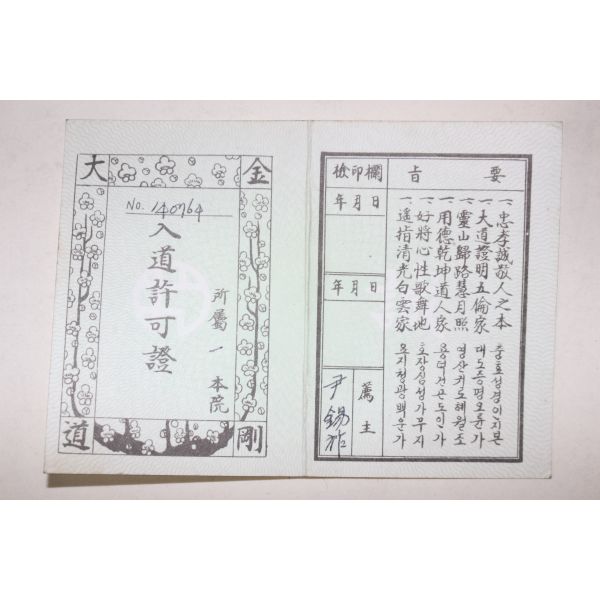 金剛大道
No. 140764
入道許可證
所屬 一 本院
要旨
一、忠孝誠敬人之本
一、大道證明五倫家
一、靈山歸路慧月照
一、用德乾坤道人家
一、好將心性歌舞地
一、遥指清光白雲家
충효성경인지본
대도증명오륜가
영산귀로혜월조
용덕건곤도인가
호장심성가무지
요지청광백운가
檢印欄
年 月 日
年 月 日
薦主
尹錫